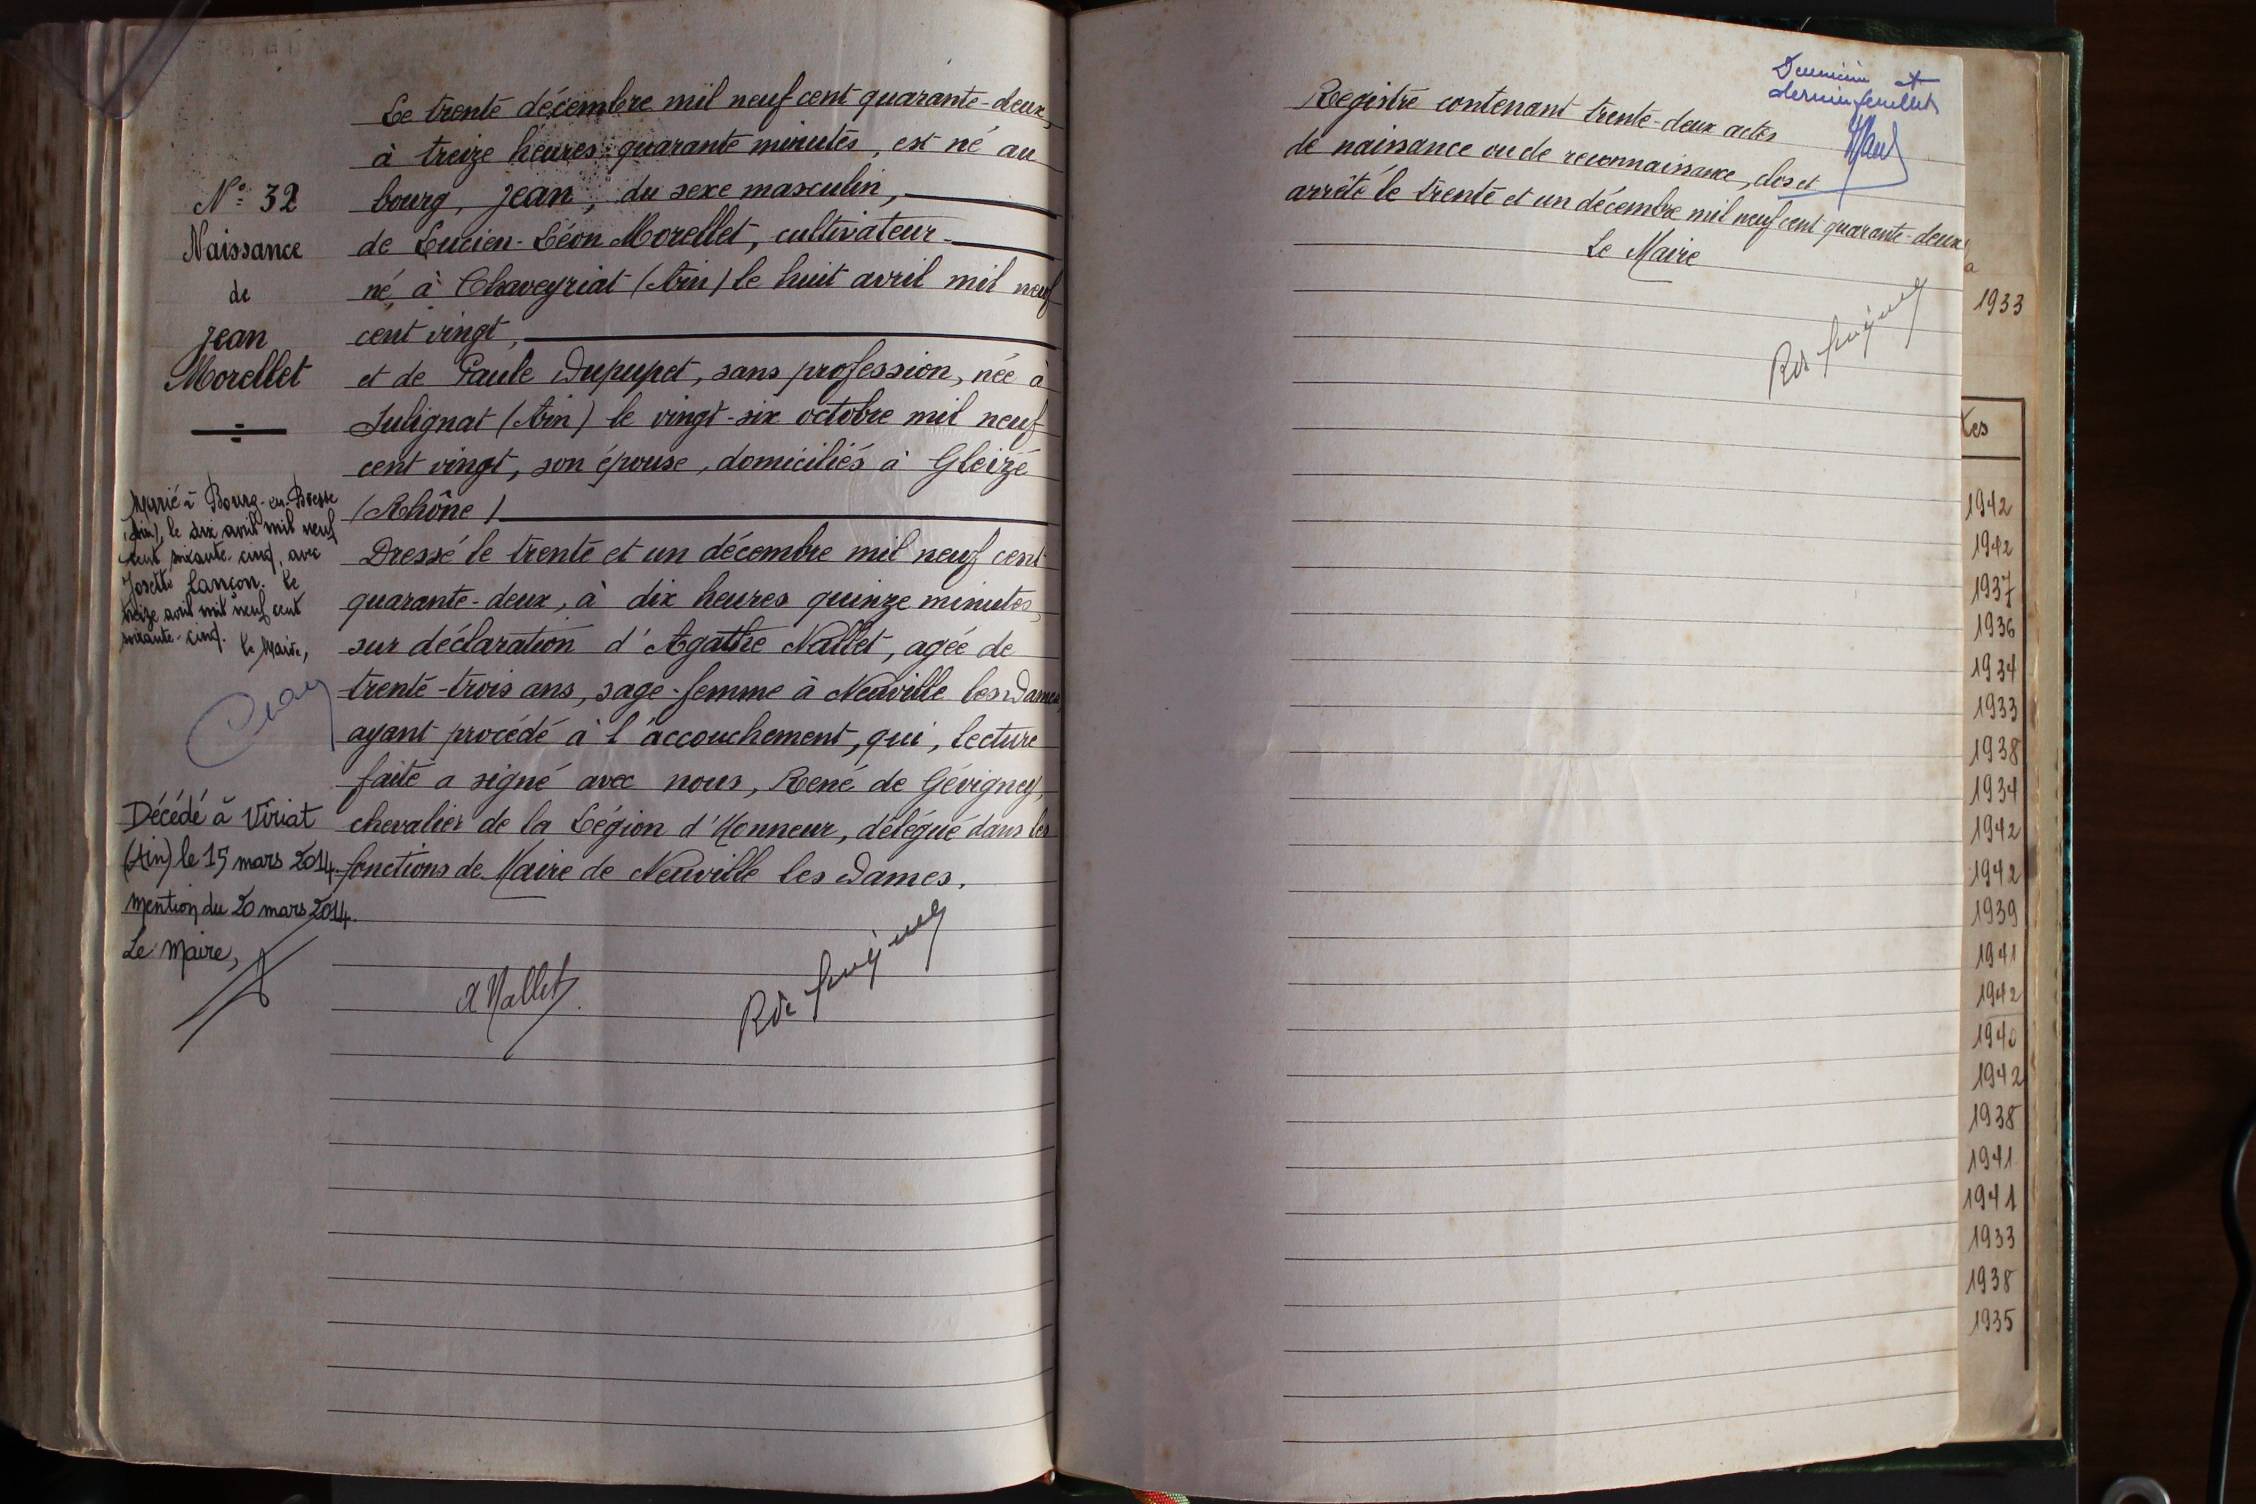 N° 32
Naissance
de
Jean
Morellet
Le trente décembre mil neuf cent quarante-deux,
à treize heures quarante minutes, est né au
bourg, Jean, du sexe masculin,
de Lucien-Léon Morellet, cultivateur
né à Chaveyriat (Ain) le huit avril mil neuf
cent vingt,
et de Paule Dupupet, sans profession, née à
Sulignat (Ain) le vingt-six octobre mil neuf
cent vingt, son épouse, domiciliés à Gleizé
(Rhône)
Dressé le trente et un décembre mil neuf cent
quarante-deux, à dix heures quinze minutes,
sur déclaration d'Agathe Nallet, agée de
trente-trois ans, sage-femme à Neuville les Dames
ayant procédé à l'accouchement, qui, lecture
faite a signé avec nous, René de Gévigney,
chevalier de la Légion d'Honneur, délégué dans les
fonctions de Maire de Neuville les Dames.
A Nallet
Marié à Bourg-en-Bresse
(Ain), le dix avril mil neuf
cent soixante-cinq, avec
Josette Lançon. Le
treize avril mil neuf cent
soixante-cinq.
Le Maire,
Décédé à Viriat
(Ain) le 15 mars 2014.
mention du 20 mars 2014.
Le Maire,
et
dernier feuillet
Registre contenant trente-deux actes
de naissance ou de reconnaissance, clos et
arrêté le trente et un décembre mil neuf cent quarante-deux
Le Maire
1933
tes
1942
1942
1937
1936
1934
1933
1938
1934
1942
1942
1939
1941
1942
1940
1942
1938
1941
1941
1933
1938
1935